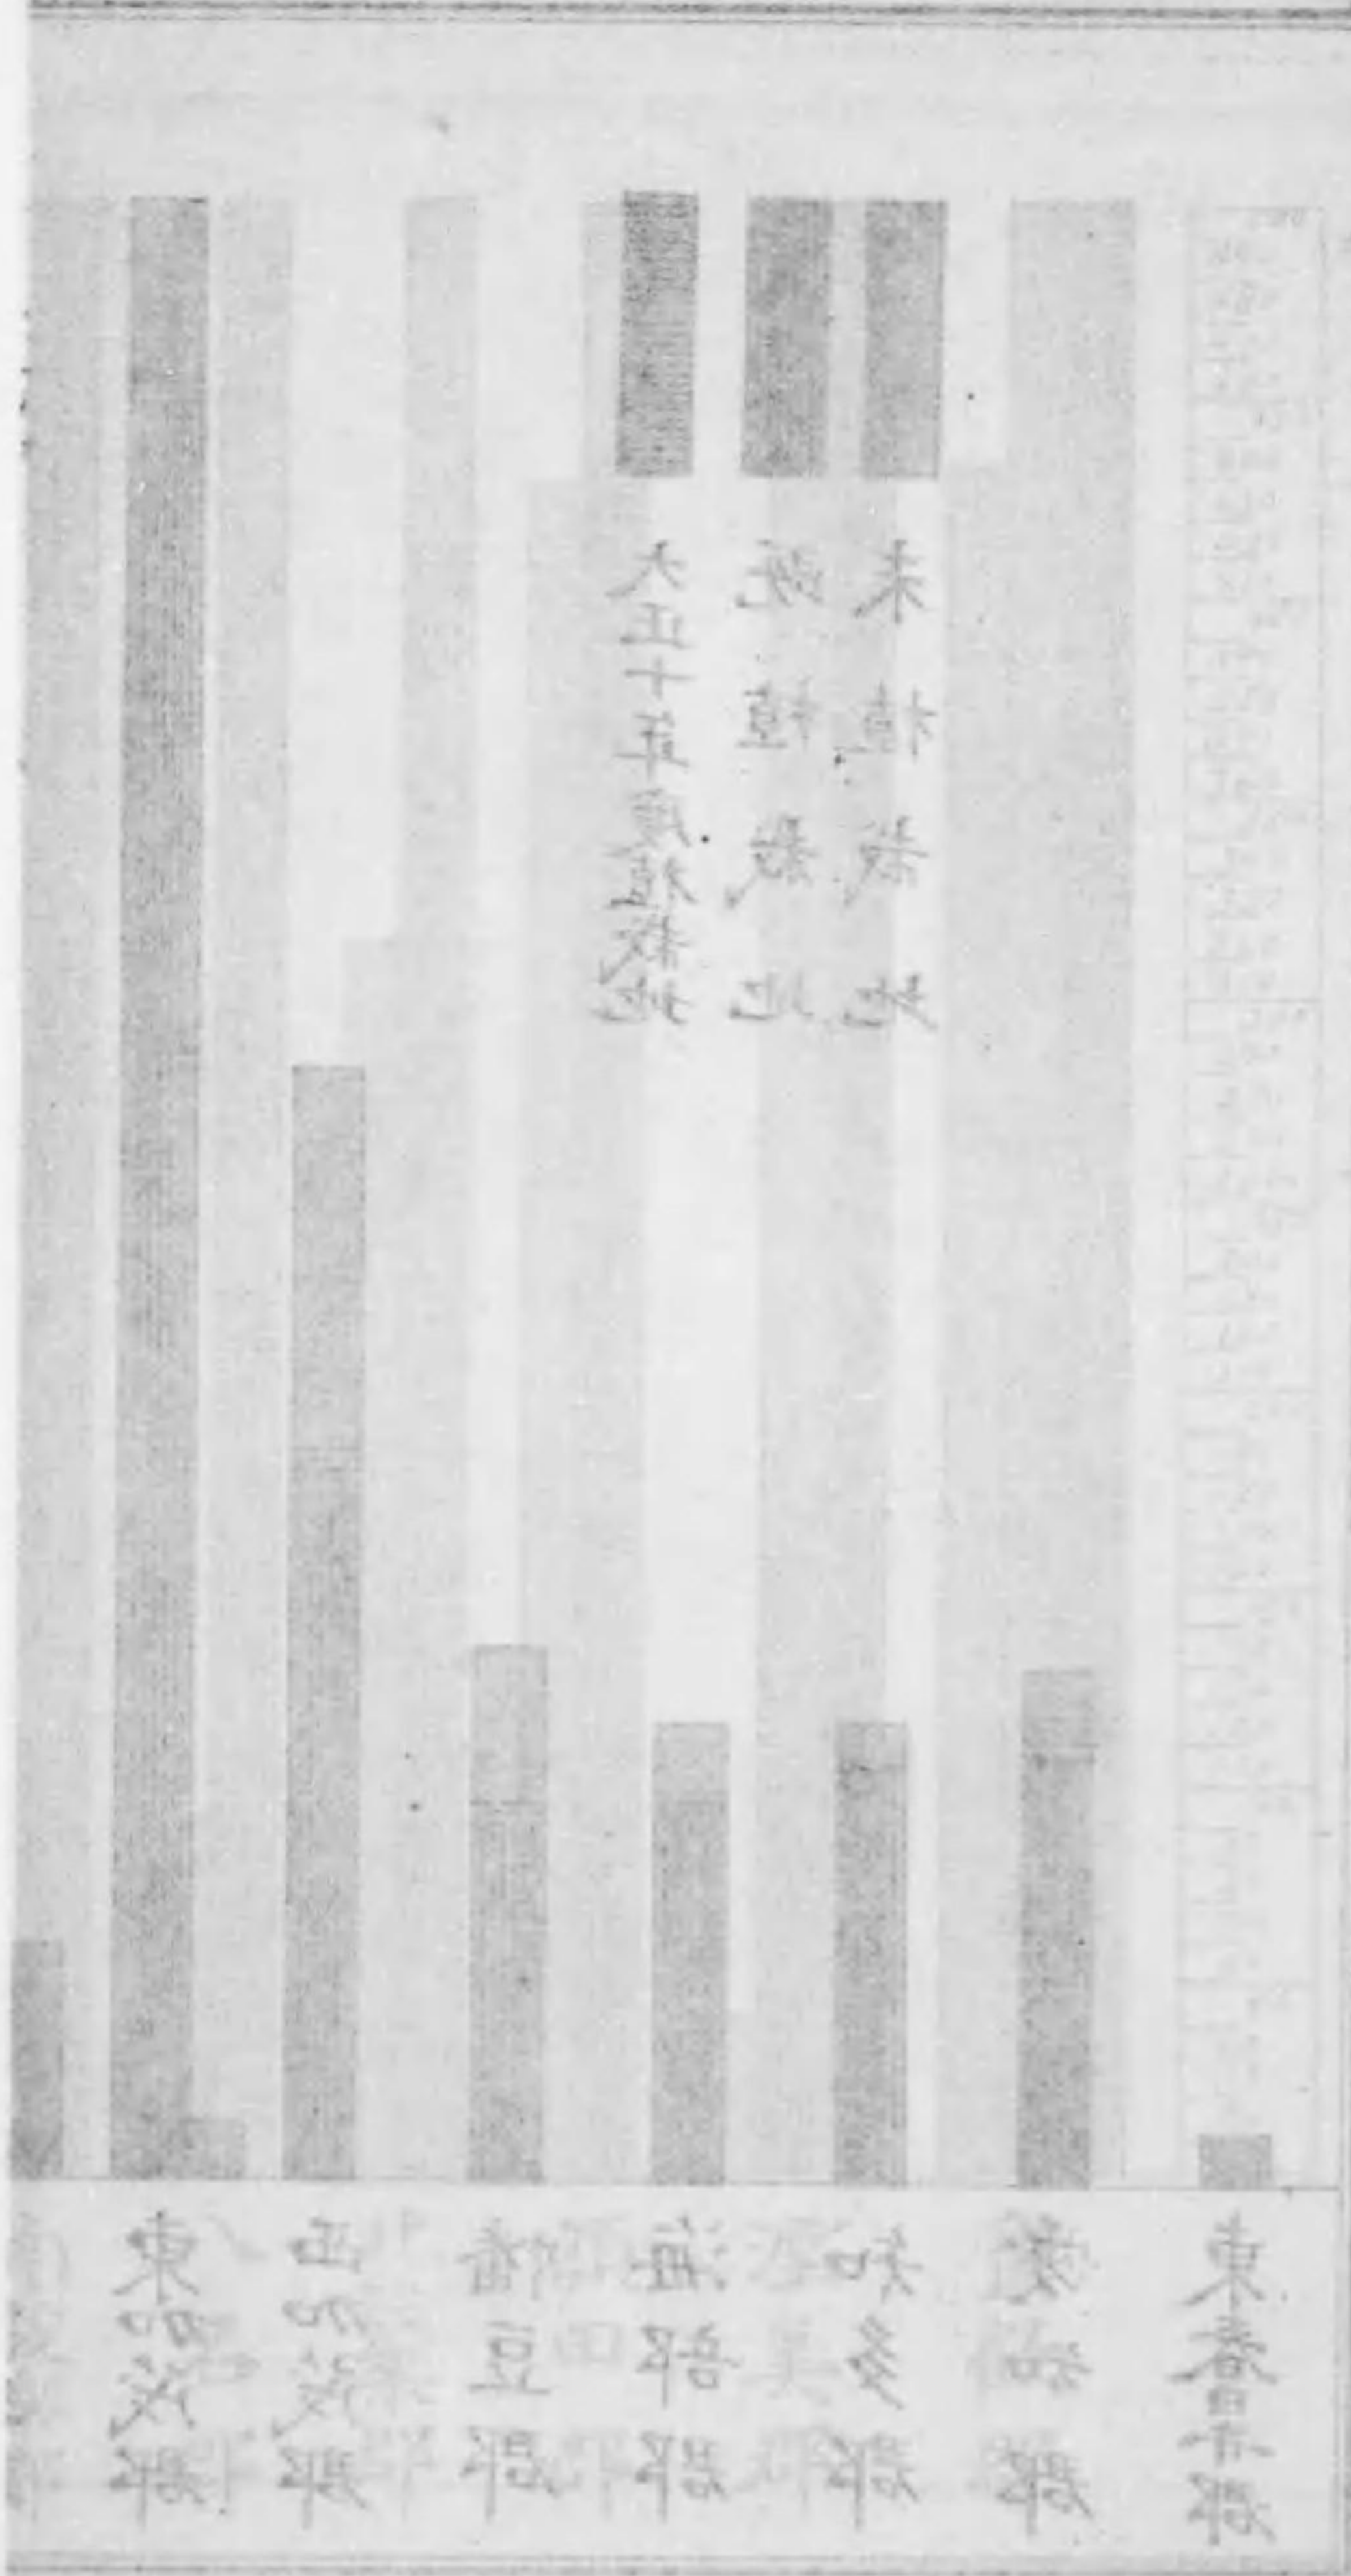 未植栽地
既植栽地
大正十年度植栽地
東春日井郡
愛知郡
知多郡
海部郡
幡豆郡
西加茂郡
東加茂郡